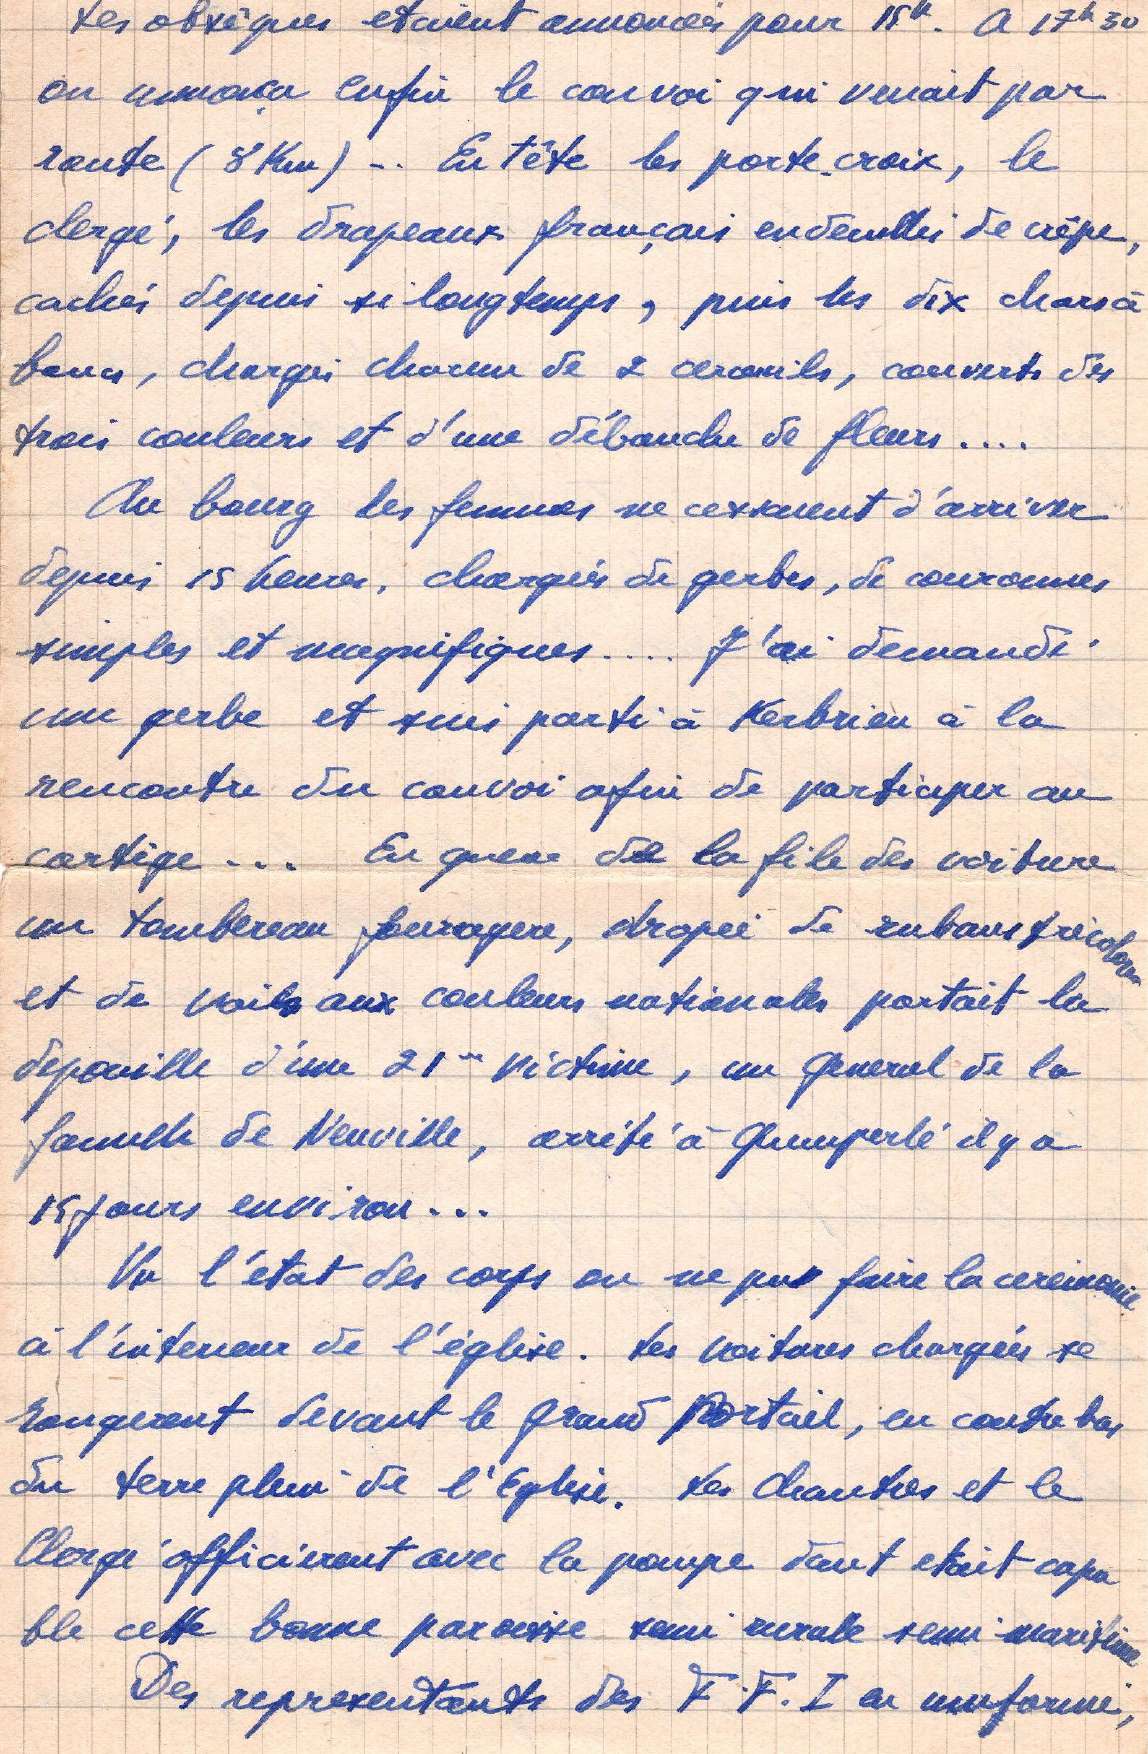 Les obsèques etaient annoncées pour 15h. A 17h30
on annonça enfin le convoi qui venait par
route (8 Km) -.. En tête les porte-croix, le
clergé, les drapeaux français endeuillés de crêpe,
cachés depuis si longtemps, puis les dix chars à
bancs, chargés chacun de 2 cercueils, couverts des
trois couleurs et d'une débauche de fleurs....
Au bourg les femmes ne cessaient d'arriver
depuis 15 heures, chargées de gerbes, de couronnes
simples et magnifiques.... J'ai demandé
une gerbe et suis parti à Kerbrien à la
rencontre du convoi afin de participer au
cortège... En queue de la file des voitures
un tombereau fourragère, drapée de rubans tricolores
et de voiles aux couleurs nationales portait la
depouille d'une 21me victime, un General de la
famille de Neuville, arrêté à Quimperlé il y a
15 jours environ...
Vu l'état des corps on ne put faire la ceremonie
à l'interieur de l'église. Les voitures chargées se
rangerent devant le grand Portail, en contre bas
du terre plein de l'Eglise. Les Chantres et le
Clergé officièrent avec la pompe dont etait capa
ble cette bonne paroisse semi rurale semi-maritime
Des representants des F.F.I en uniforme,